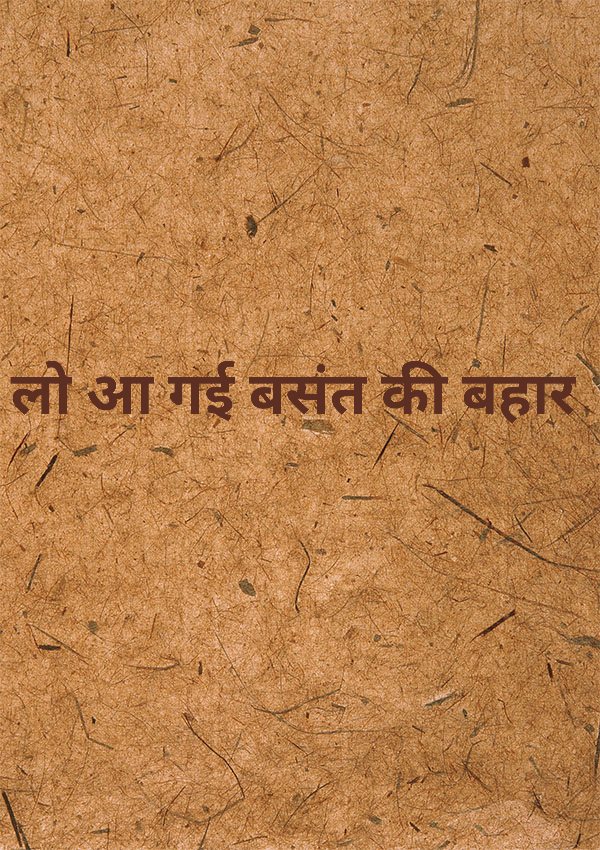 लो आ गई बसंत की बहार